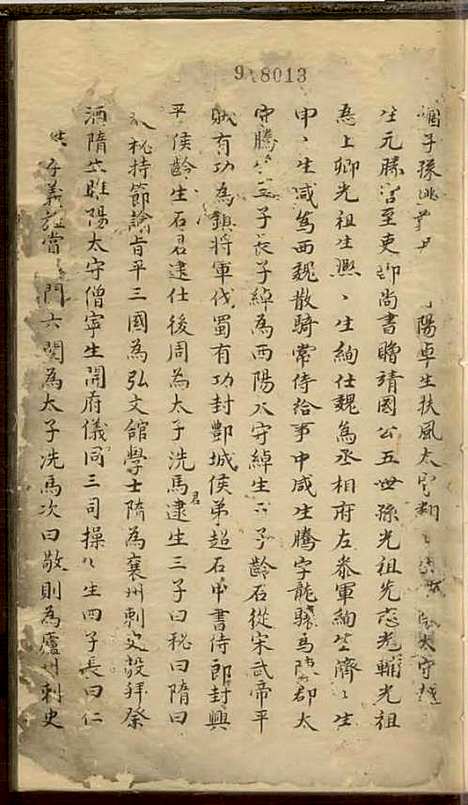 9 8013
子孫 陽卓生扶風太守 太守
生元勝官至吏部尚書贈靖國公五世孫光祖先 光輔光祖
為上卿光祖生熙〻生絢仕魏為丞相府左叅軍絢生濟〻生
申〻生咸為西魏散騎常侍給事中咸生騰字龍驤為陳郡太
守騰生 子長子綽為西陽太守綽生 子齡石從宋武帝平
賊有功為鎮將軍伐蜀有功封酆城侯弟超石中書侍郎封興
平侯齡生石君逮仕後周為太子洗馬君逮生三子曰秘曰隋曰
秘持節諭肯平三國為弘文館學士隋為襄州刺史 拜祭
酒隋生睢陽太守僧寧生開府儀同三司操〻生四子長曰仁
義 當 門六闕為太子洗馬次曰敬則為廬州刺史